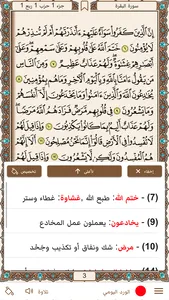 سورة البقرة
جزء 1 حزب 1 ربع 1
إِنَّ ٱلَّذِينَ كَفَرُوا۟ سَوَآءٌ عَلَيْهِمْ ءَأَنذَرْتَهُمْ أَمْ لَمْ تُنذِرْهُمْ
لَا يُؤْمِنُونَ ٦ خَتَمَ ٱللَّهُ عَلَىٰ قُلُوبِهِمْ وَعَلَىٰ سَمْعِهِمْ وَعَلَىٰٓ
أَبْصَٰرِهِمْ غِشَٰوَةٌ وَلَهُمْ عَذَابٌ عَظِيمٌ ٧ وَمِنَ ٱلنَّاسِ
مَن يَقُولُ ءَامَنَّا بِٱللَّهِ وَبِٱلْيَوْمِ ٱلْءَاخِرِ وَمَا هُم بِمُؤْمِنِينَ ٨
يُخَٰدِعُونَ ٱللَّهَ وَٱلَّذِينَ ءَامَنُوا۟ وَمَا يَخْدَعُونَ إِلَّآ أَنفُسَهُمْ
وَمَا يَشْعُرُونَ ٩ فِى قُلُوبِهِم مَّرَضٌ فَزَادَهُمُ ٱللَّهُ مَرَضًا
وَلَهُمْ عَذَابٌ أَلِيمٌۢ بِمَا كَانُوا۟ يَكْذِبُونَ ١٠ وَإِذَا قِيلَ لَهُمْ
لَا تُفْسِدُوا۟ فِى ٱلْأَرْضِ قَالُوٓا۟ إِنَّمَا نَحْنُ مُصْلِحُونَ ١١
إخفاء
لأعلى
تخصيص
(7) - ختم الله: طبع الله ,غشاوة: غطاء وستر
يخادعون: يعملون عمل المخادع
(10) - مرض: شك ونفاق أو تكذيب وجَحْد
3
الورد اليومي
تلاوة